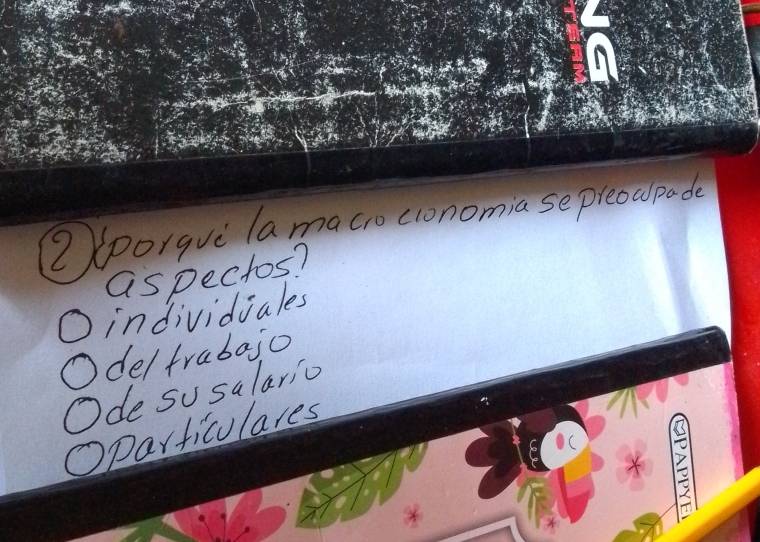 NG
TEAM
2) ¿porqué la macro economia se preocupa de
aspectos?
O individuales
O del trabajo
O de su salario
O particulares
PAPPYE